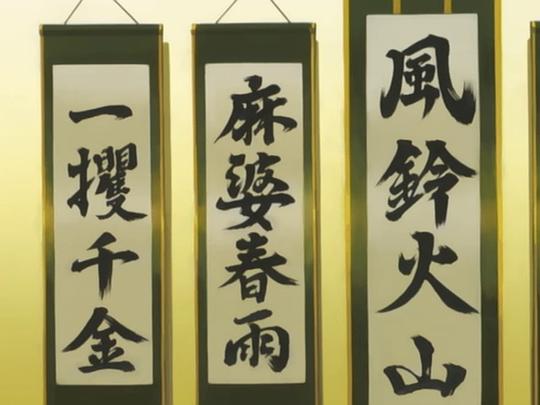 風鈴火山
麻婆春雨
一攫千金